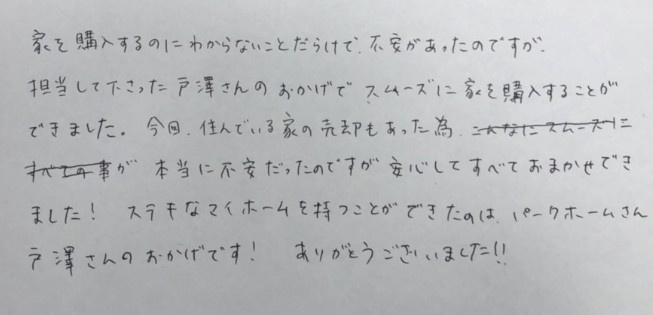 家を購入するのにわからないことだらけで、不安があったのですが、
担当して下さった戸澤さんのおかげでスムーズに家を購入することが
できました。今回、住んでいる家の売却もあった為、こんなにスムーズに
すべての事が 本当に不安だったのですが安心してすべておまかせでき
ました！ ステキなマイホームを持つことができたのは、パークホームさん
戸澤さんのおかげです！ ありがとうございました!!